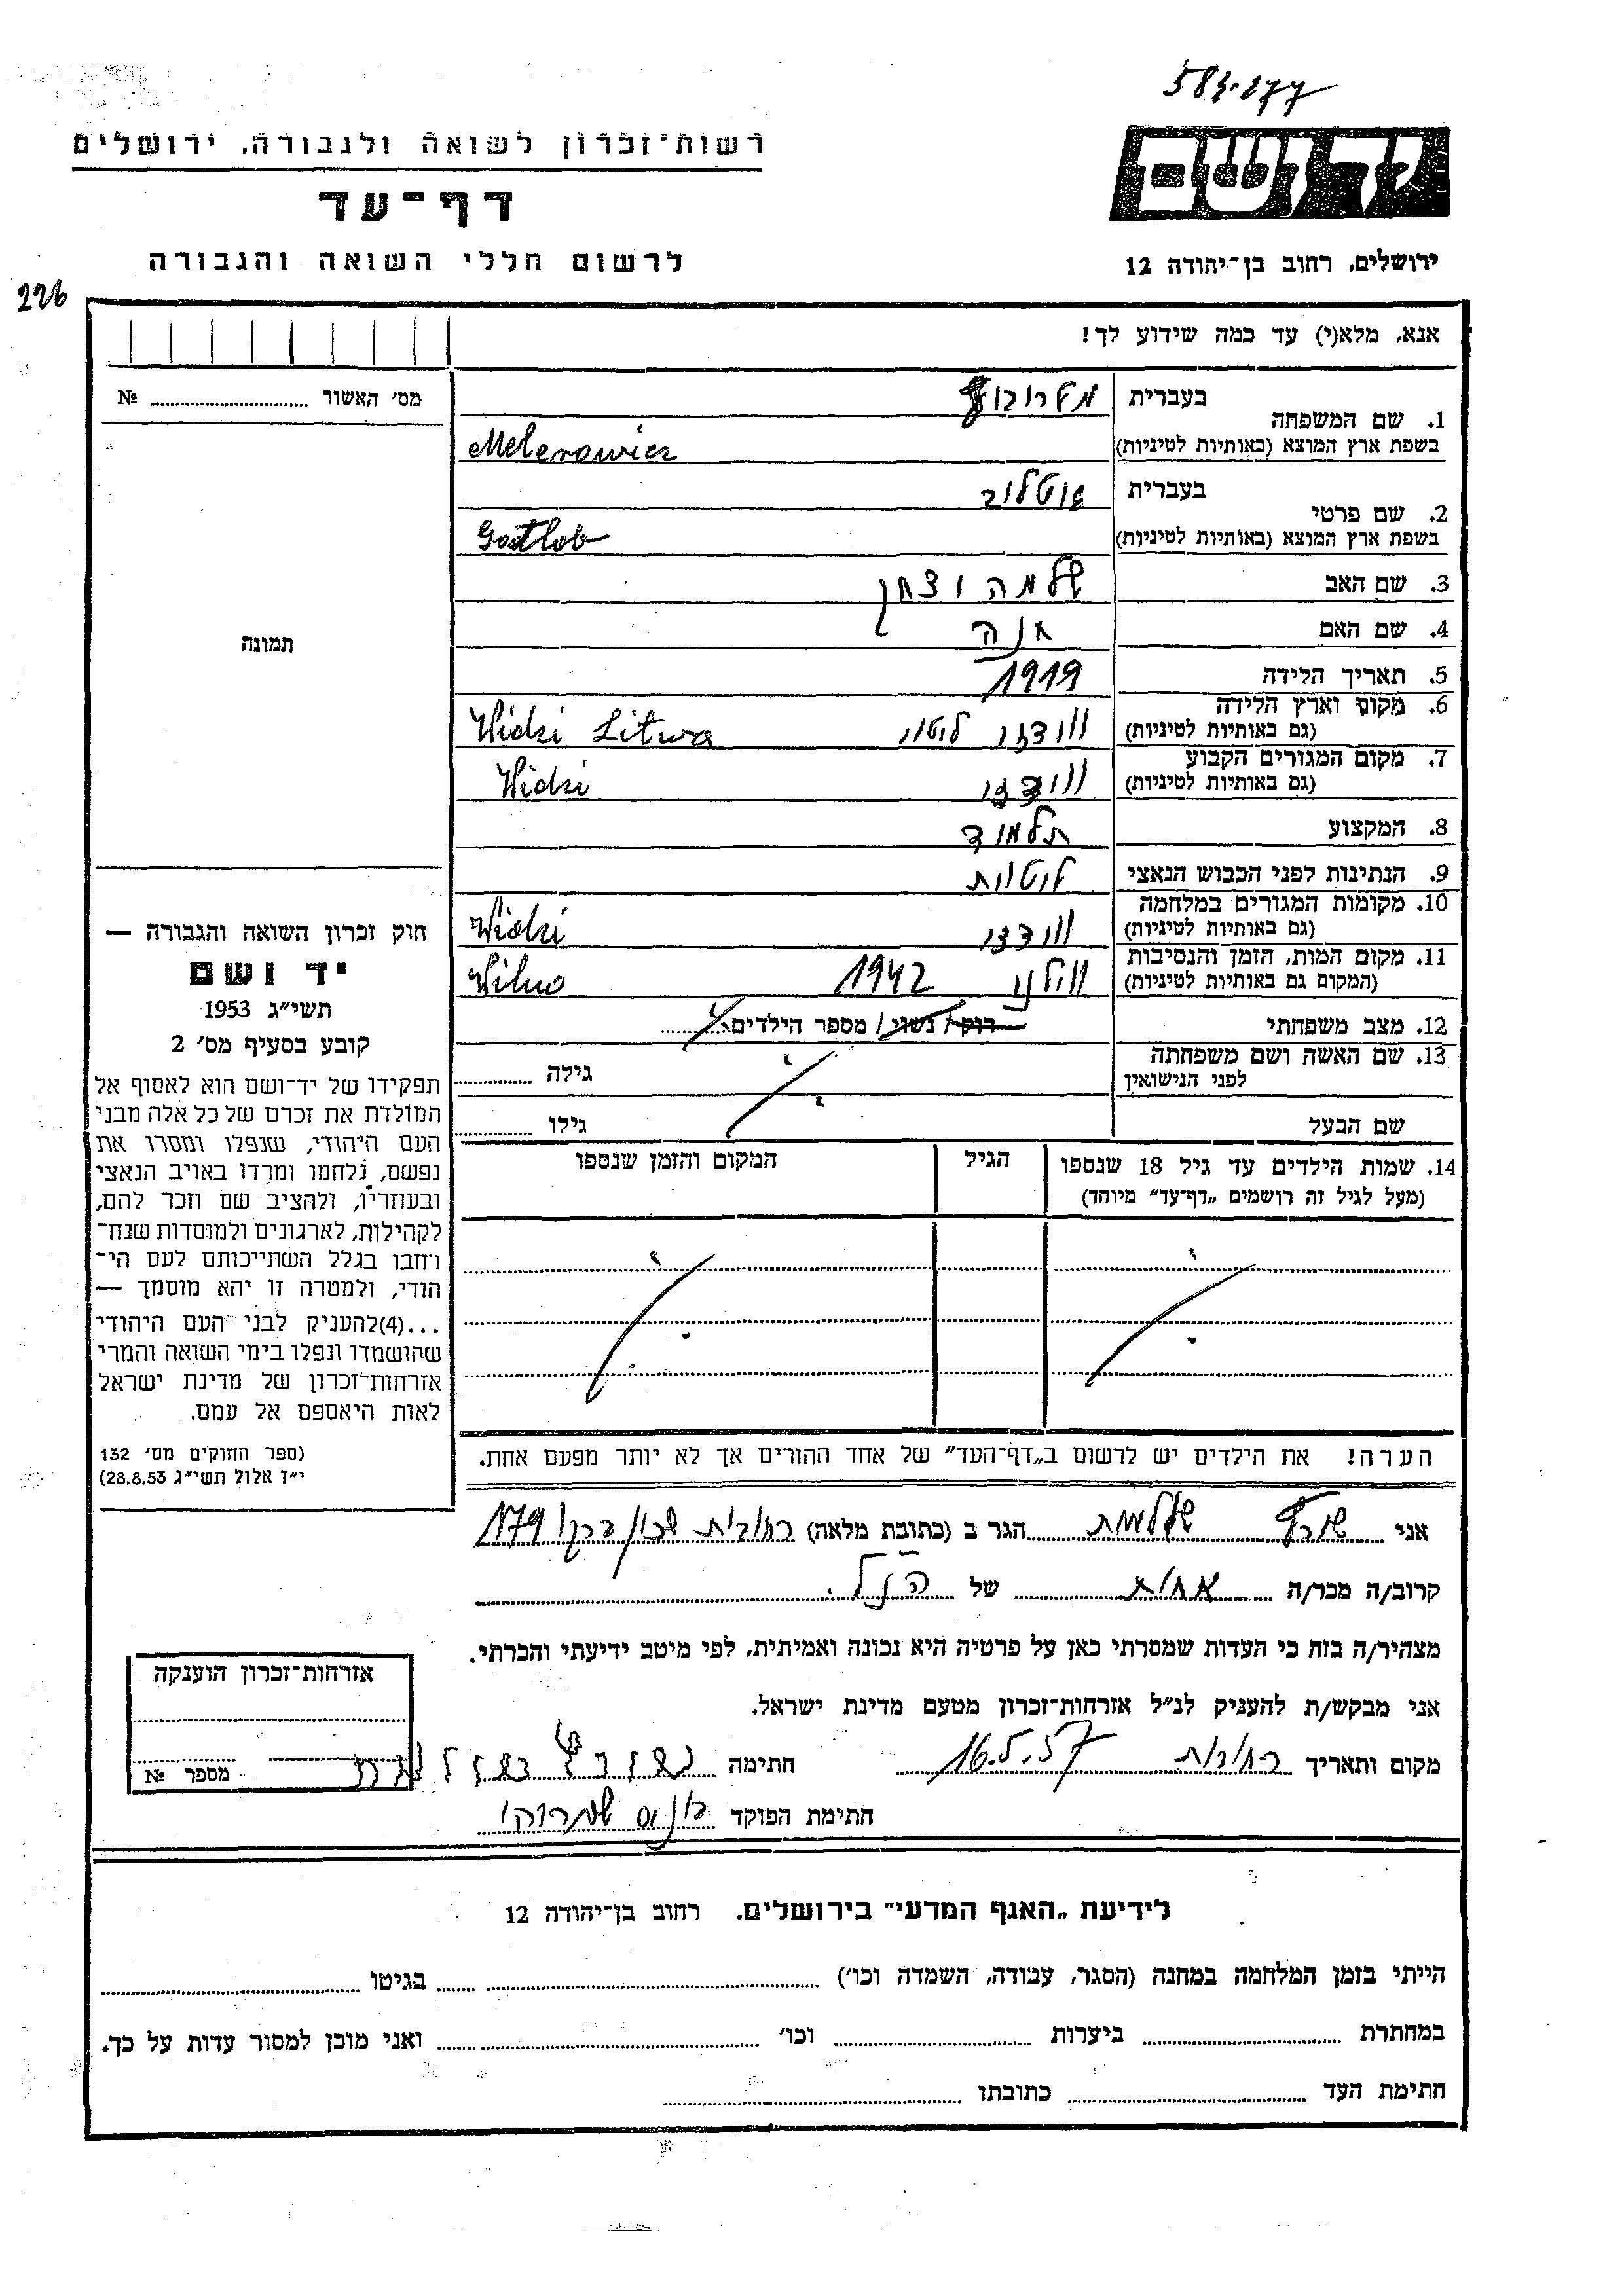 583.277
יד ושם
רשות־זכרון לשואה ולגבורה, ירושלים
דף־עד
לרשום חללי השואה והגבורה
ירושלים, רחוב בן־יהודה 12
226
אנא, מלא(י) עד כמה שידוע לך!
מס׳ האשור № 
1. שם המשפחה
בעברית
בשפת ארץ המוצא (באותיות לטיניות) Melerowicz
2. שם פרטי
בעברית גוטלוב
בשפת ארץ המוצא (באותיות לטיניות) Gostlob
3. שם האב שלמה
4. שם האם אנה
תמונה
5. תאריך הלידה 1919
6. מקום וארץ הלידה
(גם באותיות לטיניות) ווידזי Widzi Litwa
7. מקום המגורים הקבוע
(גם באותיות לטיניות) ווידזי Widzi
8. המקצוע תלמיד
9. הנתינות לפני הכבוש הנאצי ליטאית
10. מקומות המגורים במלחמה
(גם באותיות לטיניות) ווידזי Widzi
11. מקום המות, הזמן והנסיבות
(המקום גם באותיות לטיניות) ווילנו 1942 Wilno
12. מצב משפחתי רוק / נשוי / מספר הילדים
13. שם האשה ושם משפחתה
לפני הנישואין גילה
שם הבעל גילו
14. שמות הילדים עד גיל 18 שנספו
(מעל לגיל זה רושמים „דף־עד״ מיוחד)
הגיל
המקום והזמן שנספו
חוק זכרון השואה והגבורה —
יד ושם
תשי״ג 1953
קובע בסעיף מס׳ 2
תפקידו של יד־ושם הוא לאסוף אל
המולדת את זכרם של כל אלה מבני
העם היהודי, שנפלו ומסרו את
נפשם, נלחמו ומרדו באויב הנאצי
ובעוזריו, ולהציב שם וזכר להם,
לקהילות, לארגונים ולמוסדות שנח־
רחבו בגלל השתייכותם לעם הי־
הודי, ולמטרה זו יהא מוסמך —
...(4)להעניק לבני העם היהודי
שהושמדו ונפלו בימי השואה והמרי
אזרחות־זכרון של מדינת ישראל
לאות היאספם אל עמם.
(ספר החוקים מס׳ 132
י״ז אלול תשי״ג 28.8.53)
הערה! את הילדים יש לרשום ב„דף־העד״ של אחד ההורים אך לא יותר מפעם אחת.
אני שולמית הגר ב (כתובת מלאה) רחובות שכון 179
קרוב/ה מכר/ה אחות של הנ״ל.
מצהיר/ה בזה כי העדות שמסרתי כאן על פרטיה היא נכונה ואמיתית, לפי מיטב ידיעתי והכרתי.
אני מבקש/ת להעניק לנ״ל אזרחות־זכרון מטעם מדינת ישראל.
מקום ותאריך רחובות 16.5.57 חתימה
חתימת הפוקד
אזרחות־זכרון הוענקה
מספר №
לידיעת „האגף המדעי״ בירושלים, רחוב בן־יהודה 12
הייתי בזמן המלחמה במחנה (הסגר, עבודה, השמדה וכו׳) בגיטו
במחתרת ביערות וכו׳ ואני מוכן למסור עדות על כך.
חתימת העד כתובתו